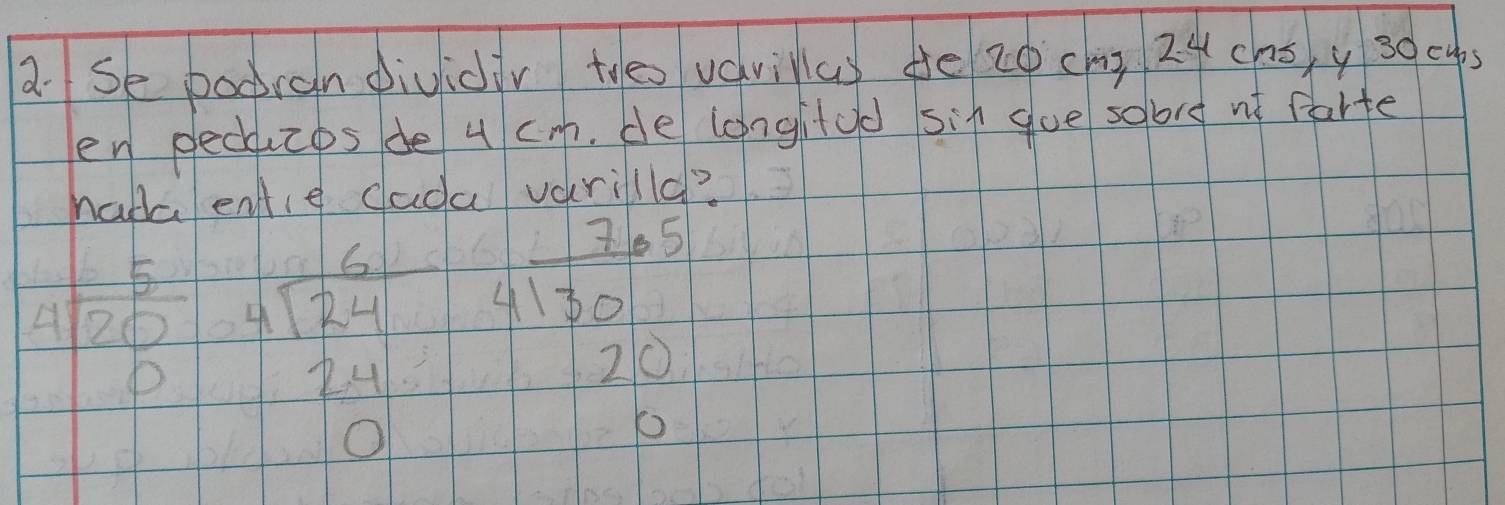 2. Se podran dividir tres varillas de 20 cms, 24 cms, y 30 cms
en pedazos de 4 cm. de longitud sin que sobre ni farte
nada entre cada varilla?
5 6 7.5
4 20 4 24 4 30
0 24 20
0 0